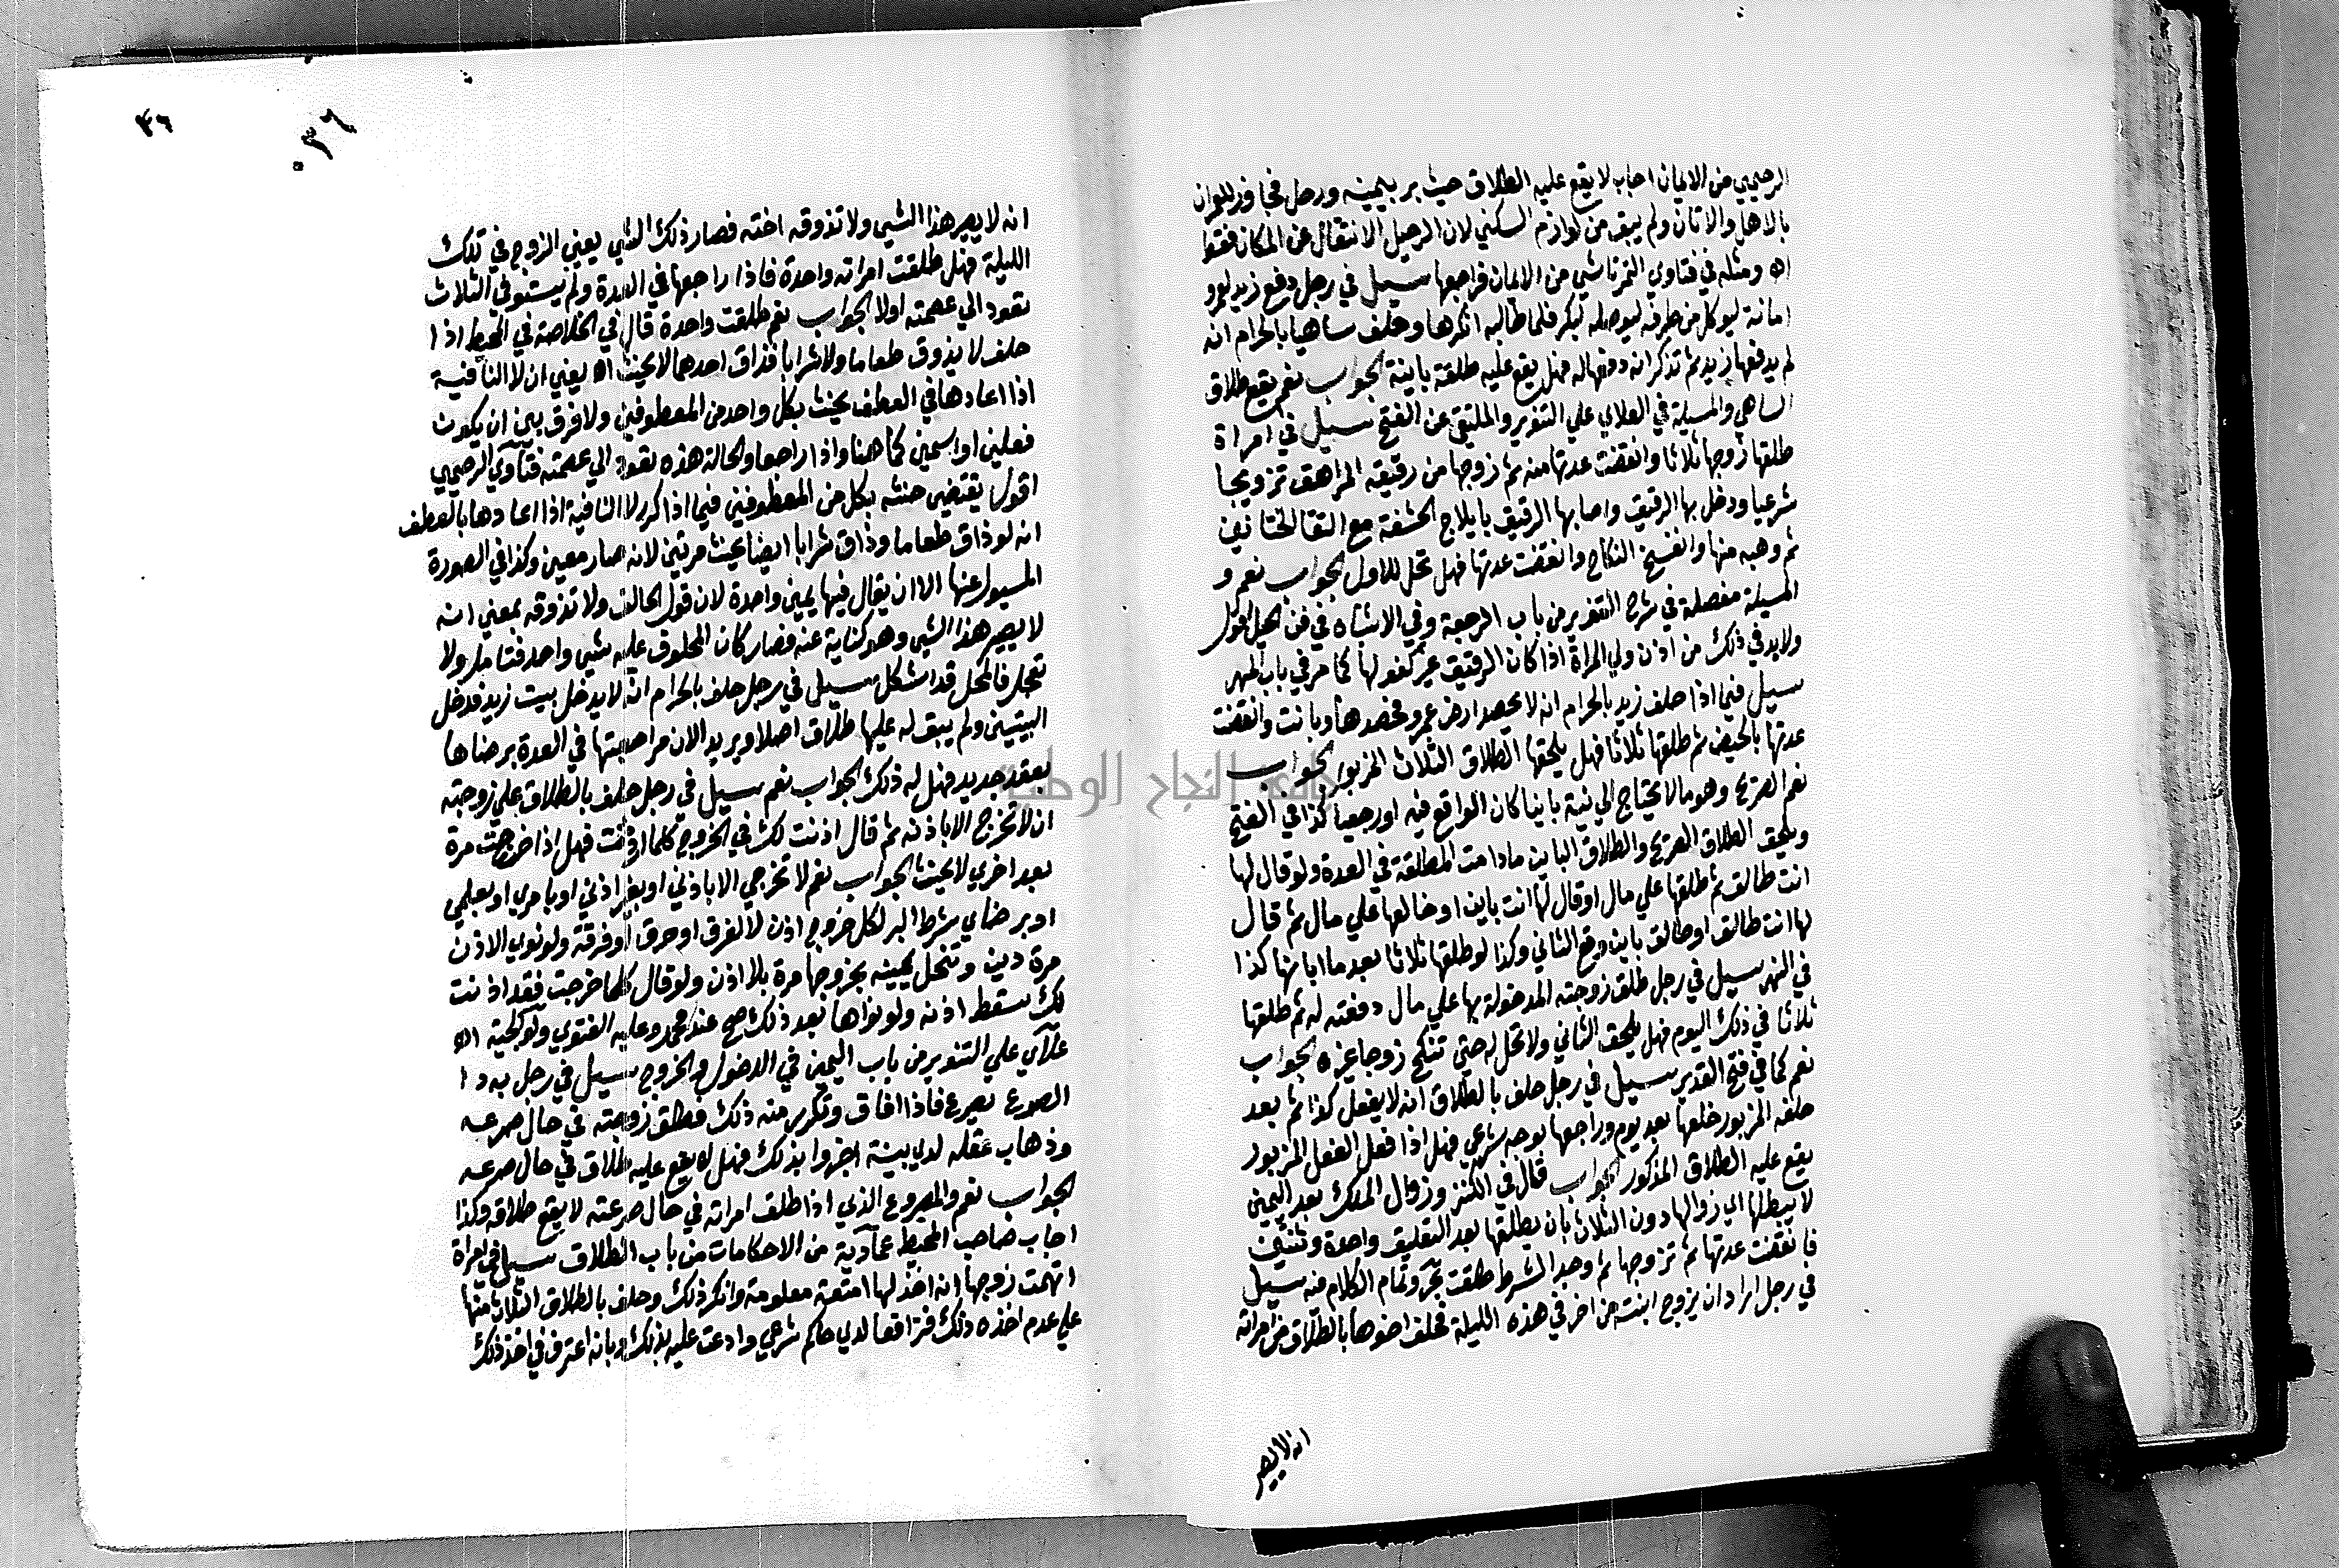 الرحيمي من الايمان اجاب لا يقع عليه الطلاق حيث بر بيمينه ورحل فجاوز للعران
بالاهل والاثان ولم يبق من لوازم السكني لان الرحيل الانتقال عن المكان فقط
اه ومثله في فتاوي التمرتاشي من الايمان فراجعها سيل في رجل دفع زيد لعمرو
امانة ليوكل من طرفه ليوصله لبكر فلما طالبه انكرها وحلف ساهيا بالحرام انه
لم يدفعها زيد ثم تذكر انه دفعها له فهل يقع عليه طلقة باينة الجواب نعم يقع طلاق
الساهي والمسيلة في العلاي علي التنوير والملتقي عن الفتح سيل في امراة
طلقها زوجها ثلاثا وانقضت عدتها منه ثم زوجها من رقيقه المراهق تزويجا
شرعيا ودخل بها الرقيق واصابها الرقيق بايلاج الحشفة مع التقا الختانين
ثم وهبه منها وانفسخ النكاح وانقضت عدتها فهل تحل للاول الجواب نعم و
المسيلة مفصلة في شرح التنوير من باب الرجعة وفي الاشباه في فن الحيل اقول
ولابد في ذلك من اذن ولي المراة اذا كان الرقيق غير كفو لها كما مر في باب المهر
سيل فيما اذا حلف زيد بالحرام انه لا يحصد ارض عمرو فحصدها وبانت وانقضت
عدتها بالحيض ثم طلقها ثلاثا فهل يلحقها الطلاق الثلاث المزبور الجواب
نعم الصريح وهو ما لا يحتاج الي نية باينا كان الواقع فيه او رجعيا كذا في الفتح
ويلحق الطلاق الصريح والطلاق الباين مادامت المطلقة في العدة ولو قال لها
انت طالق ثم طلقها علي مال او قال لها انت باين او خالعها علي مال ثم قال
لها انت طالق او طالق باين وقع الثاني وكذا لو طلقها ثلاثا بعد ما ابانها كذا
في النهر سيل في رجل طلق زوجته المدخولة بها علي مال دفعته له ثم طلقها
ثلاثا في ذلك اليوم فهل يلحق الثاني ولا تحل له حتي تنكح زوجا غيره الجواب
نعم كما في فتح القدير سيل في رجل حلف بالطلاق انه لا يفعل كذا ثم بعد
حلفه المزبور خلعها بعد يوم وراجعها بوجه شرعي فهل اذا فعل الفعل المزبور
يقع عليه الطلاق المذكور الجواب قال في الكنز وزوال الملك بعد اليمين
لا يبطلها اي زوالها دون الثلاث بان يطلقها بعد التعليق واحدة وثنتين
فانقضت عدتها ثم تزوجها ثم وجد الشرط طلقت بحر وتمام الكلام منه سيل
في رجل اراد ان يزوج ابنته من اخر في هذه الليلة فحلف اخوها بالطلاق من امراته
انه لا يصير
٣٦
٣٦٠
انه لا يصير هذا الشي ولا تذوقه اخته فصار ذلك الشي يعني الزوج في تلك
الليلة فهل طلقت امراته واحدة فاذا راجعها في العدة ولم يستوفي الثلاث
تعود الي عصمته اولا الجواب نعم طلقت واحدة قال في الخلاصة في المحيط اذا
حلف لا يذوق طعاما ولا شرابا فذاق احدهما لا يحنث اه يعني ان لا النافية
اذا اعادها في العطف يحنث بكل واحد من المعطوفين ولا فرق بين ان يكون
فعلين او اسمين كما هنا واذا راجعها والحالة هذه تعود الي عصمته فتاوي الرحيمي
اقول يقتضي حنثه بكل من المعطوفين فيما اذا كرر لا النافية اذا اعادها بالعطف
انه لو ذاق طعاما وذاق شرابا ايضا يحنث مرتين لانه صار معين وكذا في الصورة
المسيول عنها الا ان يقال فيها يمين واحدة لان قول الحالف ولا تذوقه بمعني انه
لا يصير هذا الشي وهو كناية عنه فصار كان المحلوف عليه شي واحد فتامل ولا
تعجل فالمحل قد اشكل سيل في رجل حلف بالحرام انه لا يدخل بيت زيد فدخل
البيتين ولم يبق له عليها طلاق اصلا ويريد الان مراجعتها في العدة برضاها
بعقد جديد فهل له ذلك الجواب نعم سيل في رجل حلف بالطلاق علي زوجته
ان لا تخرج الا باذنه ثم قال اذنت لك في الخروج كلما اذنت فهل اذا خرجت مرة
بعد اخري لا يحنث الجواب نعم لا تخرجي الا باذني او بغير اذني او بامري او بعلمي
او برضاي شرط البر لكل خروج اذن لا لغرق او حرق او فرقة ولو نوي الاذن
مرة دين وتنحل يمينه بخروجها مرة بلا اذن ولو قال كلما خرجت فقد اذنت
لك سقط اذنه ولو نهاها بعد ذلك صح عند محمد وعليه الفتوي ولوالجية اه
علاي علي التنوير من باب اليمين في الدخول والخروج سيل في رجل به دا
الصرع يصرع فاذا افاق وتكرر منه ذلك فطلق زوجته في حال صرعه
وذهاب عقله لدي بينة اخبروا بذلك فهل لا يقع عليه طلاق في حال صرعه
الجواب نعم والمصروع الذي اذا طلق امراته في حال صرعته لا يقع طلاقه وكذا
اجاب صاحب المحيط عمادية من الاحكامات من باب الطلاق سيل في امراة
اتهمت زوجها انه اخذ لها امتعة معلومة وانكر ذلك وحلف بالطلاق الثلاث منها
علي عدم اخذه ذلك فترافعا لدي حاكم شرعي وادعت عليه بذلك وبانه اعترف في اخذ ذلك
جامعة النجاح الوطنية